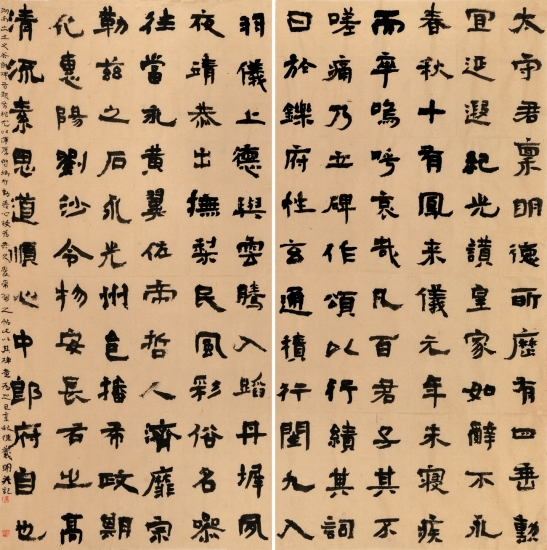 太守君稟明德所歷有四垂勳
宜延遐紀光讚皇家如辭不永
春秋十有鳳来儀元年未寢疾
而卒嗚呼哀哉凡百君子其不
嗟痛乃立碑作頌以行績其詞
曰於鑠府性玄通積行閨九入
羽儀上德與雲騰入蹈丹墀夙
夜靖恭出撫梨民風彩俗名
往當永黄翼佐帝哲人濟靡宗
勒兹之石永光州邑播希政期
化惠陽劉沙令物安長右之高
清流素思道順心中郎府自也